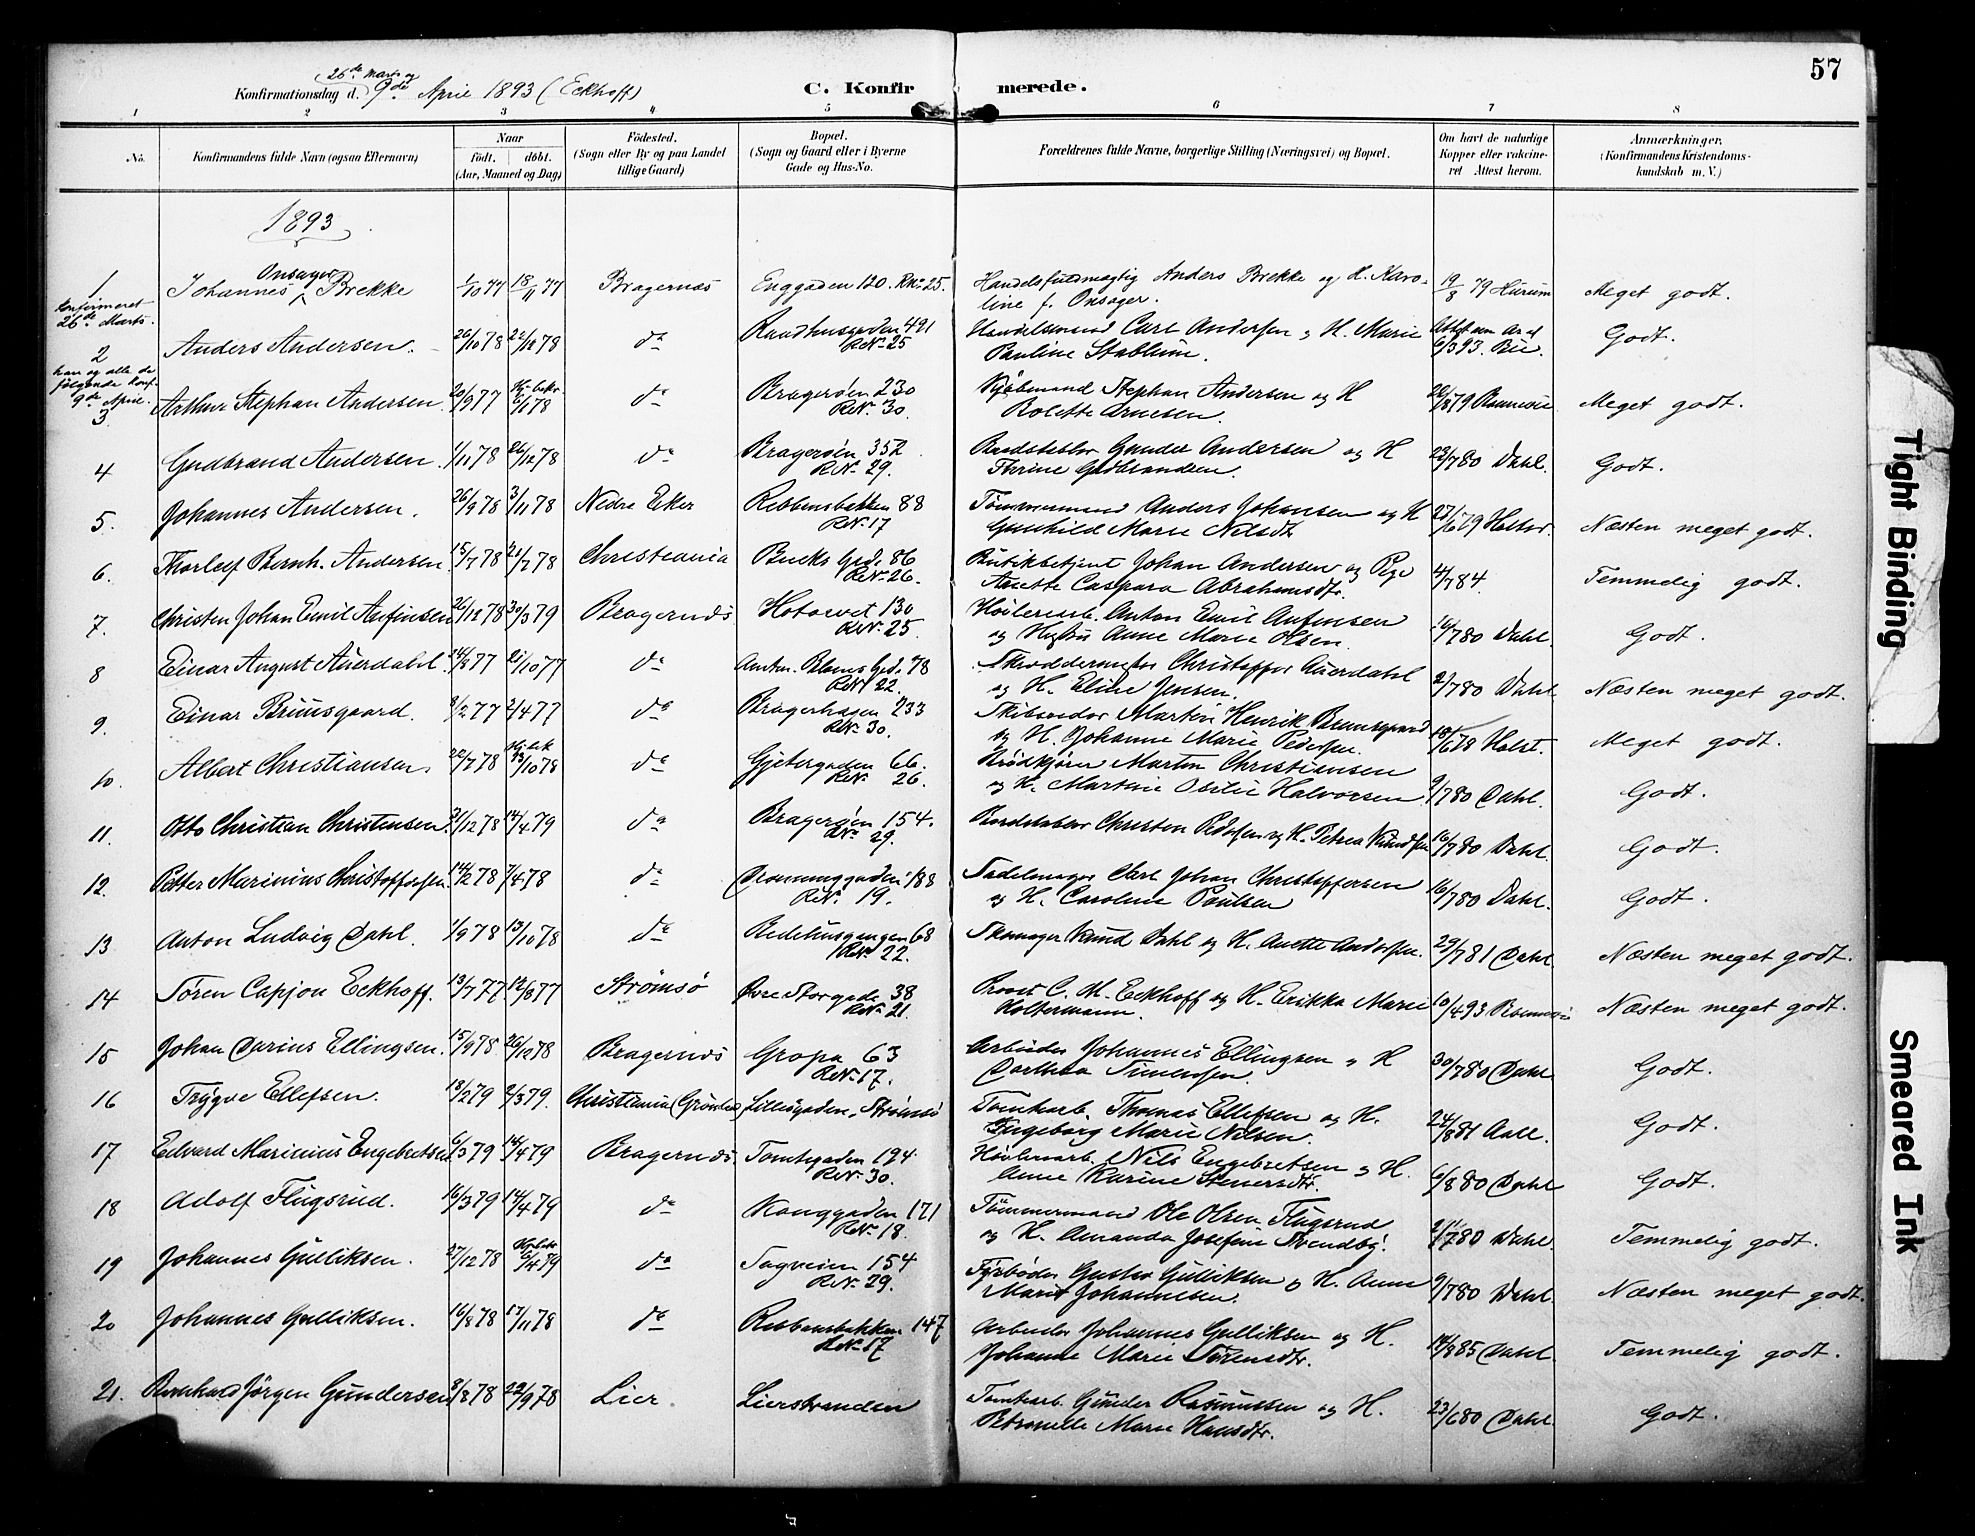 57
26de Marts og
Konfirmationsdag d. 9de April 1893 (Eckhoff)
C. Konfirmerede.
1 2 3 4 5 6 7 8
No. Konfirmandens fulde Navn (ogsaa Efternavn)
Naar født. døbt. (Aar, Maaned og Dag)
Fødested. (Sogn eller By og paa Landet tillige Gaard)
Bopæl. (Sogn og Gaard eller i Byerne Gade og Hus-No.
Forældrenes fulde Navne, borgerlige Stilling (Næringsvei) og Bopæl.
Om havt de naturlige Kopper eller vakcineret Attest herom.
Anmærkninger. (Konfirmandens Kristendomskundskab m. V.)
1893
1 konfirmeret 26de Marts. Johannes Onsager Brekke 1/10 77 18/11 77 Bragernæs Enggaden 120. RNo 25. Handelsfuldmægtig Anders Brekke og H. Karoline f. Onsager. 19/8 79 Hurum Meget godt.
2 Anders Andersen. 26/10 78 78 do Raadhusgaden 491 RNo 25 Handelsmand Carl Andersen og H. Marie Pauline Stablum. 6/3 93. Godt.
han og alle de følgende konf. 9de April.
3. Arthur Stephan Andersen 20/9 77 6/1 78 do Bragerøen 230 RNo. 30. Kjøbmand Stephan Andersen og H Rolette Arnesen. 79 Meget godt.
4 Gudbrand Andersen. 1/11 78 26/12 78 do Bragerøen 352 RNo. 29. Gunder Andersen og H Thrine Gudbrandsen. 22/7 80 Dahl. Godt.
5. Johannes Andersen. 26/9 78 3/11 78 Nedre Eker Ribbensbakken 88 RNo. 17 Tømmermand Anders Johansen og H Gunhild Marie Nilsdt 27/6 79 Næsten meget godt.
6. Thorleif Bernh. Andersen. 15/1 78 21/7 78 Christiania Bucks Gd. 86 RNo. 26. Butikbetjent Johan Andersen og Pige Anette Caspara Abrahamsdtr. 4/7 84. Temmelig godt.
7. Christen Johan Emil Anfinsen 26/12 78 30/3 79 Bragernæs Hotorvet 130 RNo. 25. Høvlerarb. Anton Emil Anfinsen og Hustru Anne Marie Olsen. 16/7 80 Dahl. Godt.
8 Einar August Auerdahl. 14/8 77 21/10 77 do Anton. Blams Gd. 78 RNo 22. Skræddermester Christopher Auerdahl og H. Eline Jensen. 2/7 80 Dahl Næsten meget godt.
9. Einar Bruusgaard. 3/2 77 2/4 77 do Bragerhagen 233 RNo. 30. Skibsreder Martin Henrik Bruusgaard og H. Johanne Marie Pedersen. 18/6 78 Holst. Meget godt.
10. Albert Christiansen, 22/7 78 13/10 78 do Gjetergaden 66. RNo. 26. Brødkjører Martin Christiansen og H. Martine Otilie Halvorsen 9/7 80 Dahl. Godt.
11. Otto Christian Christensen. 31/12 78 14/4 79 do Bragerøen 154. RNo. 29. Christen Pedersen og H. Petrea Knudsen 16/7 80 Dahl. Godt.
12. Petter Marinius Christoffersen 14/2 78 7/4 78 do Dronninggaden 188 RNo. 19. Sadelmager Carl Johan Christoffersen og H. Caroline Poulsen 16/7 80 Dahl. Godt.
13 Anton Ludvig Dahl. 1/9 78 13/10 78 do Redehusgangen 68 RNo. 22. Skomager Knud Dahl og H. Anette Andersen. 29/7 81 Dahl Næsten meget godt.
14 Søren Capjon Eckhoff. 13/7 77. 12/8 77 Strømsø Øvre Storgade 38 RNo. 21. Provst C. M. Eckhoff og H. Erikka Marie Holtermann. 10/4 93 Næsten meget godt.
15 Johan Darius Ellingsen. 15/9 78. 26/12 78 Bragernæs Gropa 63 RNo. 17. Arbeider Johannes Ellingsen og H Dorthea Simensen. 30/7 80 Dahl Godt.
16 Trygve Ellefsen. 13/2 79 2/3 79. Christiania (Grønland) Lilleøgaden. Strømsø Tomtearb. Thomas Ellefsen og H. Ingeborg Marie Nilsen. 24/8 81 Aall. Godt.
17 Edvard Marinius Engebretsen 6/3 79 14/4 79 Bragernæs. Tomtegaden 194 RNo. 30. Høvleriarb. Nils Engebretsen og H. Anne Karine Steensdtr. 6/8 80 Dahl Godt.
18 Adolf Flugsrud. 16/3 79 14/4 79 do Konggaden 171 RNo. 18. Tømmermand Ole Olsen Flugsrud og H. Amanda Josefine Svendby. 2/7 80 Dahl. Temmelig godt.
19 Johannes Gulliksen. 27/12 78 6/4 79 do Sagveien 154 RNo. 29. Fyrbøder Gustav Gulliksen og H. Anne Marie Johannesen. 9/7 80 Dahl. Næsten meget godt.
20 Johannes Gulliksen. 16/8 78 17/11 78 do Ribbensbakken 147 RNo. 17 Arbeider Johannes Gulliksen og H. Johanne Marie Sørensdtr. 14/8 85 Dahl. Temmelig godt.
21. Bernhard Jørgen Gundersen 8/8 78 22/9 78 Lier. Lierstranden Tomtearb. Gunder Rasmussen og H. Petronelle Marie Hansdtr. 23/6 80 Dahl Godt.
Tight Binding
Smeared Ink